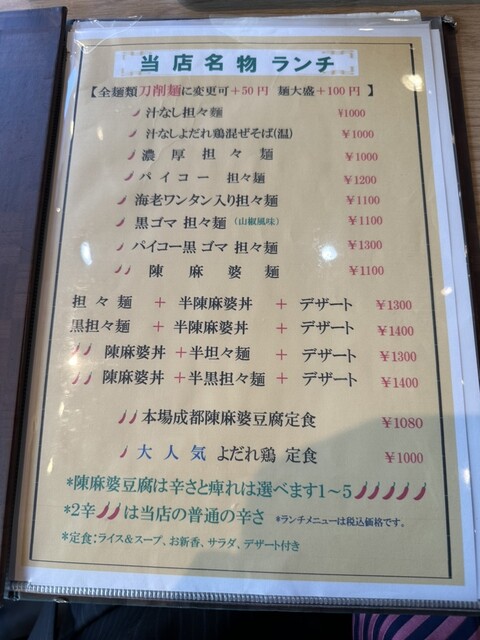 当店名物 ランチ
【全麺類刀削麺に変更可+50円 麺大盛+100円】
汁なし担々麺 ¥1000
汁なしよだれ鶏混ぜそば(温) ¥1000
濃厚担々麺 ¥1000
パイコー 担々麺 ¥1200
海老ワンタン入り担々麺 ¥1100
黒ゴマ 担々麺 (山椒風味) ¥1100
パイコー黒ゴマ 担々麺 ¥1300
陳麻婆麺 ¥1100
担々麺 + 半陳麻婆丼 + デザート ¥1300
黒担々麺 + 半陳麻婆丼 + デザート ¥1400
陳麻婆丼 + 半坦々麺 + デザート ¥1300
陳麻婆丼 + 半黒担々麺 + デザート ¥1400
本場成都陳麻婆豆腐定食 ¥1080
大人気 よだれ鶏 定食 ¥1000
*陳麻婆豆腐は辛さと痺れは選べます1～5
*2辛は当店の普通の辛さ *ランチメニューは税込価格です。
*定食:ライス&スープ、お新香、サラダ、デザート付き